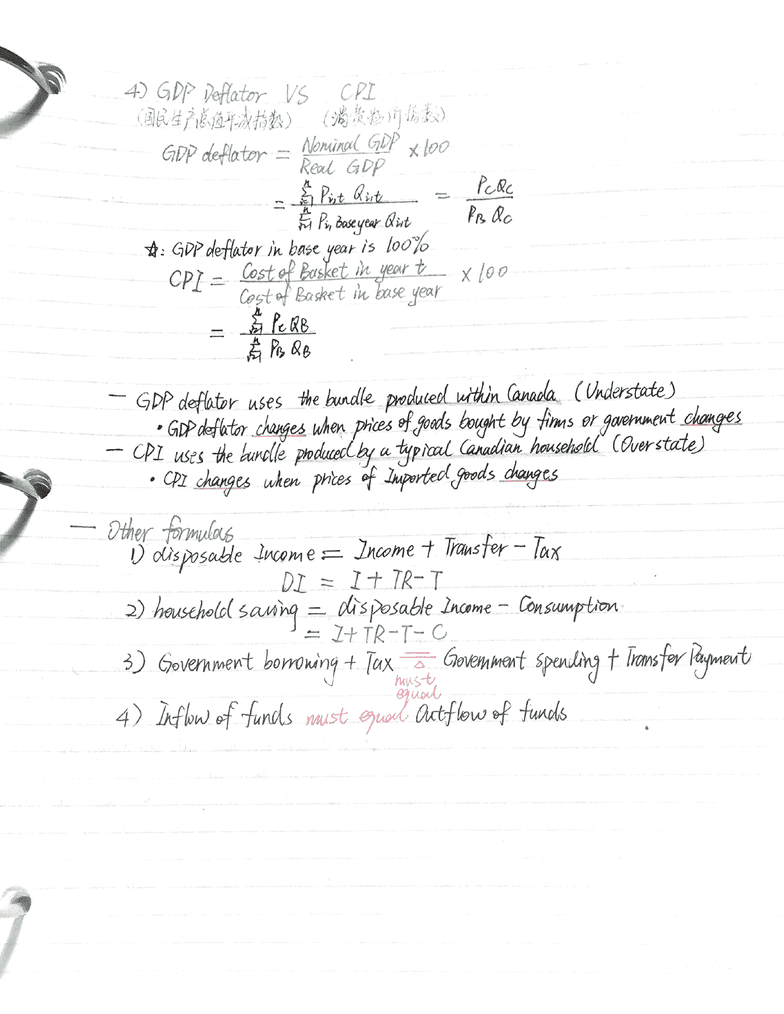 4) GDP Deflator VS CPI
(国民生产总值平减指数) (消费物价指数)
GDP deflator = Nominal GDP / Real GDP × 100
= Σ Pi,t Qi,t / Σ Pi, base year Qi,t = PcQc / PB Qc
☆: GDP deflator in base year is 100%
CPI = Cost of Basket in year t / Cost of Basket in base year × 100
= Σ Pc QB / Σ PB QB
— GDP deflator uses the bundle produced within Canada (Understate)
• GDP deflator changes when prices of goods bought by firms or government changes
— CPI uses the bundle produced by a typical Canadian household (Overstate)
• CPI changes when prices of Imported goods changes
— Other formulas
1) disposable Income = Income + Transfer - Tax
DI = I + TR - T
2) household saving = disposable Income - Consumption
= I + TR - T - C
3) Government borrowing + Tax = Government spending + Transfer Payment
must
equal
4) Inflow of funds must equal Outflow of funds